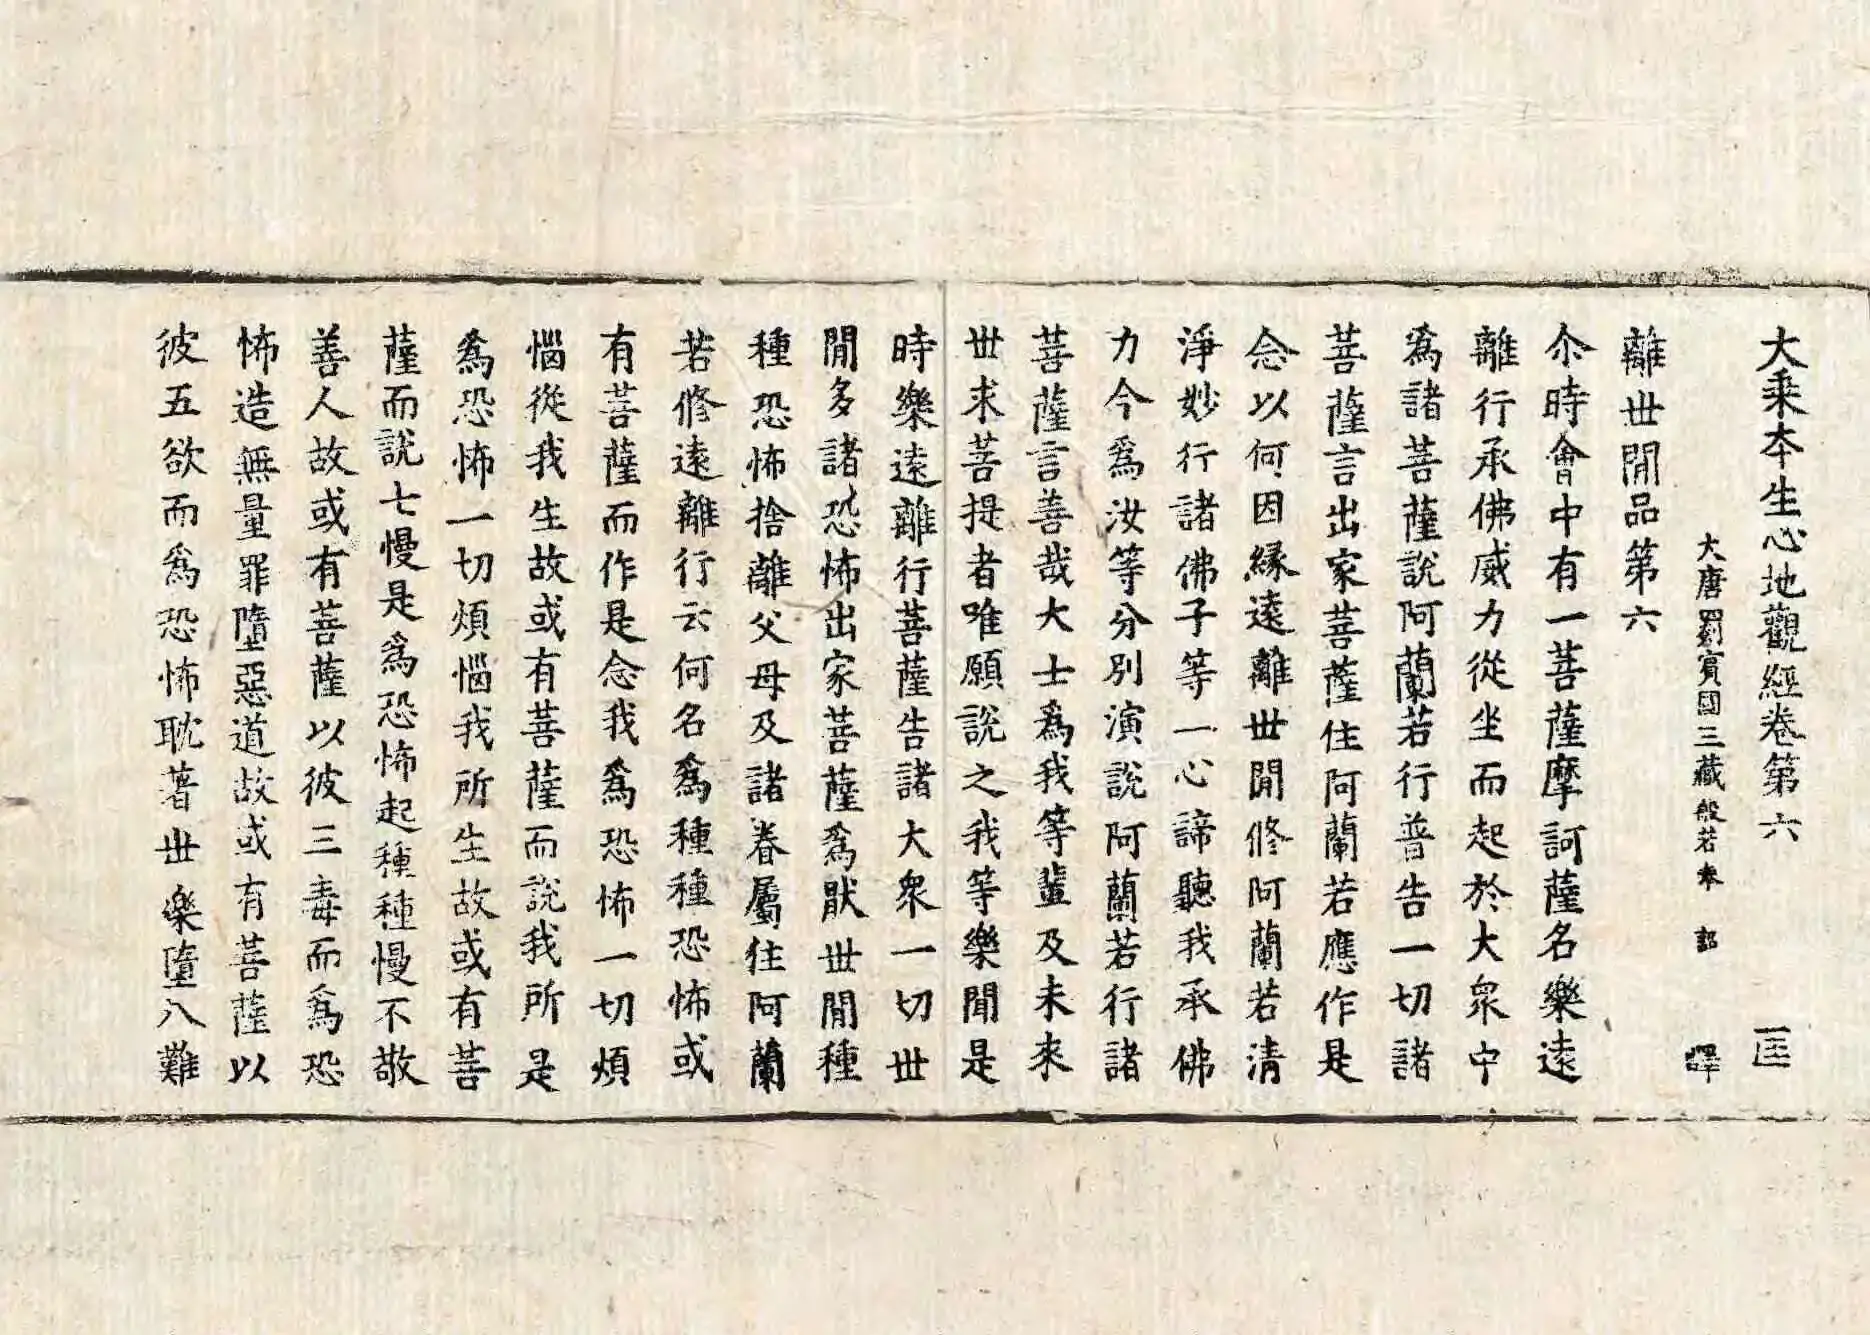 大乘本生心地觀經卷第六 匡
大唐罽賓國三藏般若奉 詔 譯
離世閒品第六
尒時會中有一菩薩摩訶薩名樂遠
離行承佛威力從坐而起於大衆中
爲諸菩薩說阿蘭若行普告一切諸
菩薩言出家菩薩住阿蘭若應作是
念以何因縁遠離世閒修阿蘭若清
淨妙行諸佛子等一心諦聽我承佛
力今爲汝等分別演說阿蘭若行諸
菩薩言善哉大士爲我等輩及未來
世求菩提者唯願說之我等樂聞是
時樂遠離行菩薩告諸大衆一切世
閒多諸恐怖出家菩薩爲猒世閒種
種恐怖捨離父母及諸眷屬住阿蘭
若修遠離行云何名爲種種恐怖或
有菩薩而作是念我爲恐怖一切煩
惱從我生故或有菩薩而說我所是
爲恐怖一切煩惱我所生故或有菩
薩而說七慢是爲恐怖起種種慢不敬
善人故或有菩薩以彼三毒而爲恐
怖造無量罪墮惡道故或有菩薩以
彼五欲而爲恐怖耽著世樂墮八難